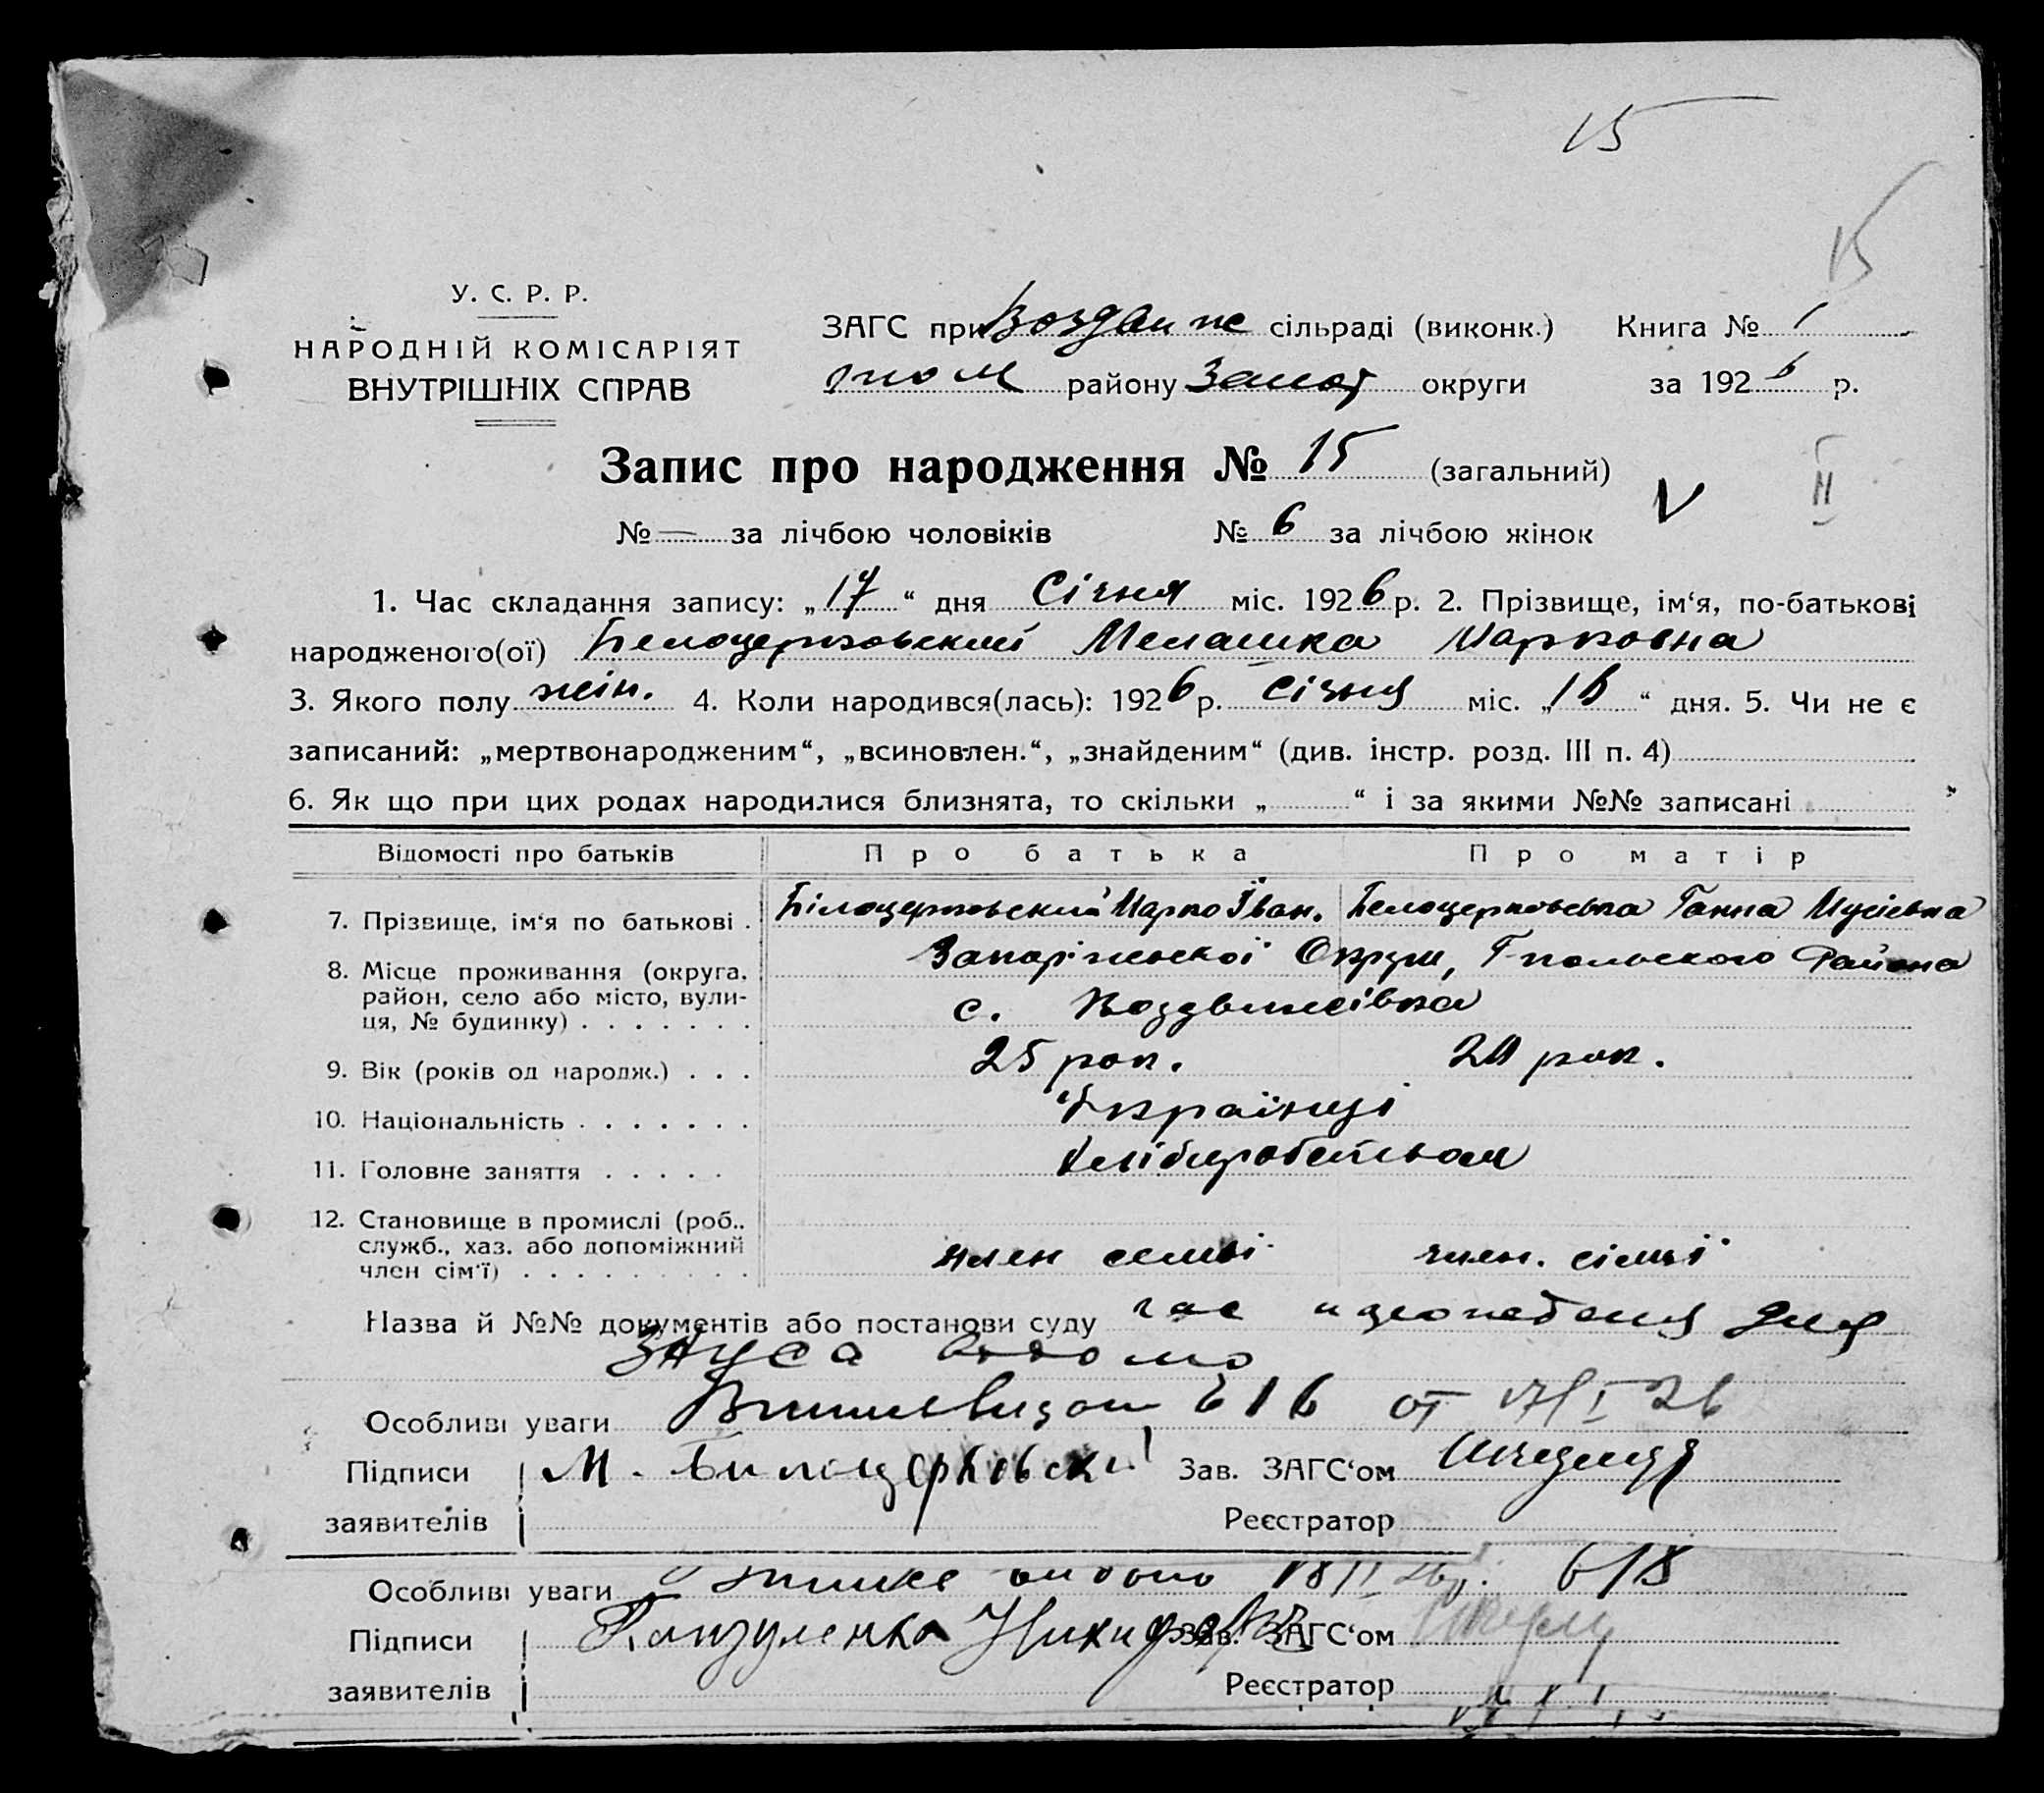 15
15
У. С. Р. Р.
НАРОДНІЙ КОМІСАРІЯТ
ВНУТРІШНІХ СПРАВ
ЗАГС при Воздвиж сільраді (виконк.) Книга № 1
району Запор округи за 1926 р.
Запис про народження № 15 (загальний)
V II
№ — за лічбою чоловіків № 6 за лічбою жінок
1. Час складання запису: „17“ дня Січня міс. 1926 р. 2. Прізвище, ім‘я, по-батькові
народженого(ої) Белоцерковский Мелашка Марковна
3. Якого полу жін. 4. Коли народився(лась): 1926 р. Січня міс. „16“ дня. 5. Чи не є
записаний: „мертвонародженим“, „всиновлен.“, „знайденим“ (див. інстр. розд. III п. 4)
6. Як що при цих родах народилися близнята, то скільки „ “ і за якими №№ записані
Відомості про батьків Про батька Про матір
7. Прізвище, ім‘я по батькові . Білоцерковский Марко Іван. Белоцерковська Ганна Мусіевна
8. Місце проживання (округа, Запоріжської Округи, Г-польского Района
район, село або місто, вули-
ця, № будинку) . . . . . . . с. Воздвижівка
9. Вік (років од народж.) . . . 25 рок. рок.
10. Національність . . . . . . . Українці
11. Головне заняття . . . . . Хліборобством
12. Становище в промислі (роб.,
служб., хаз. або допоміжний
член сім‘ї) . . . . . . . . . член семьі член. сімьї
Назва й №№ документів або постанови суду для
ЗАГСа
Особливі уваги 616 от 17/I 26
Підписи М. Билоцерковски Зав. ЗАГС‘ом
заявителів Реєстратор
Особливі уваги видано 618
Підписи Зав. ЗАГС‘ом
заявителів Реєстратор